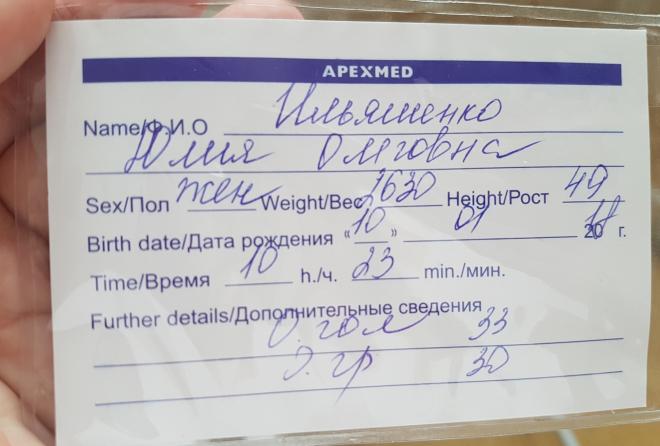 APEXMED
Name/Ф.И.О Ильяшенко
Юлия Олеговна
Sex/Пол жен Weight/Вес 2630 Height/Рост 49
Birth date/Дата рождения «10» 01 2018 г.
Time/Время 10 h./ч. 23 min./мин.
Further details/Дополнительные сведения
О. гол 33
О. гр 30